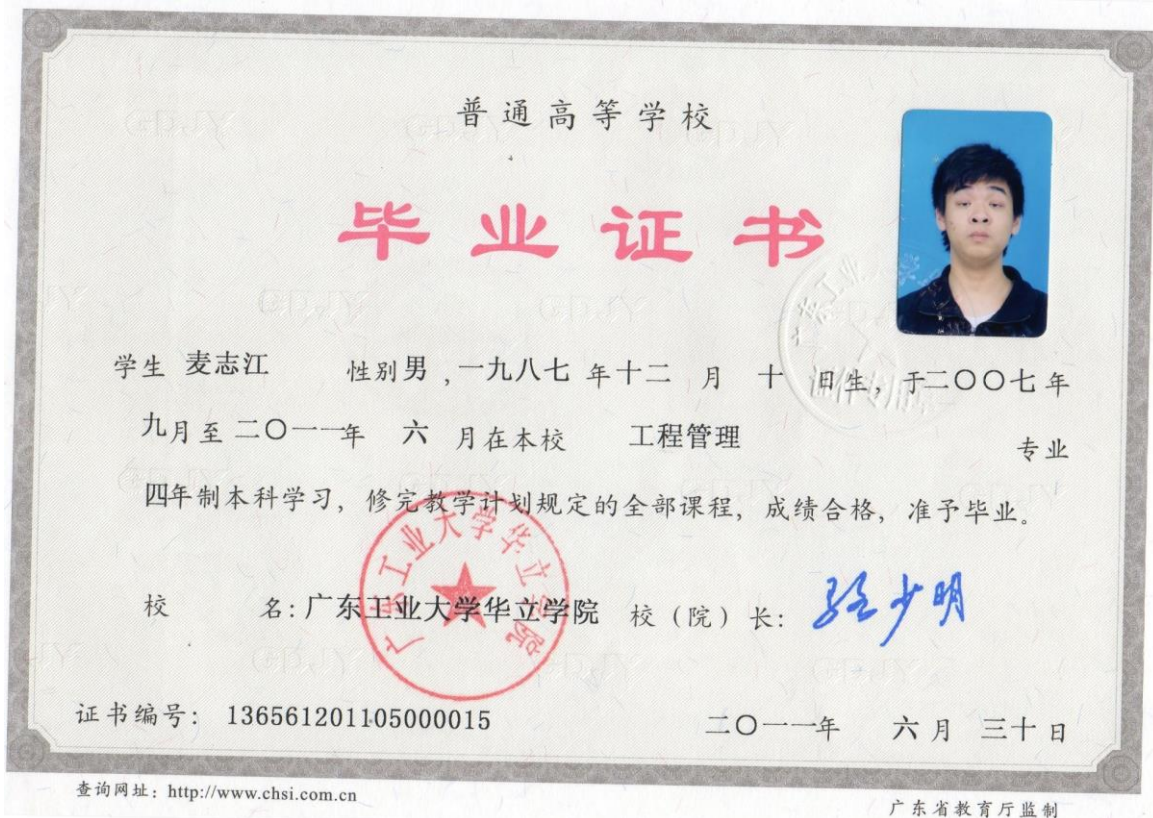 普通高等学校
毕业证书
学生 麦志江 性别 男 ,一九八七 年 十二 月 十 日生,于二〇〇七 年
九月至 二〇一一年 六 月在本校 工程管理 专业
四年制本科学习,修完教学计划规定的全部课程,成绩合格,准予毕业。
校 名: 广东工业大学华立学院 校(院)长: 骆少明
广东工业大学华立学院
证书编号: 136561201105000015 二〇一一年 六月 三十日
查询网址: http://www.chsi.com.cn
广东省教育厅监制